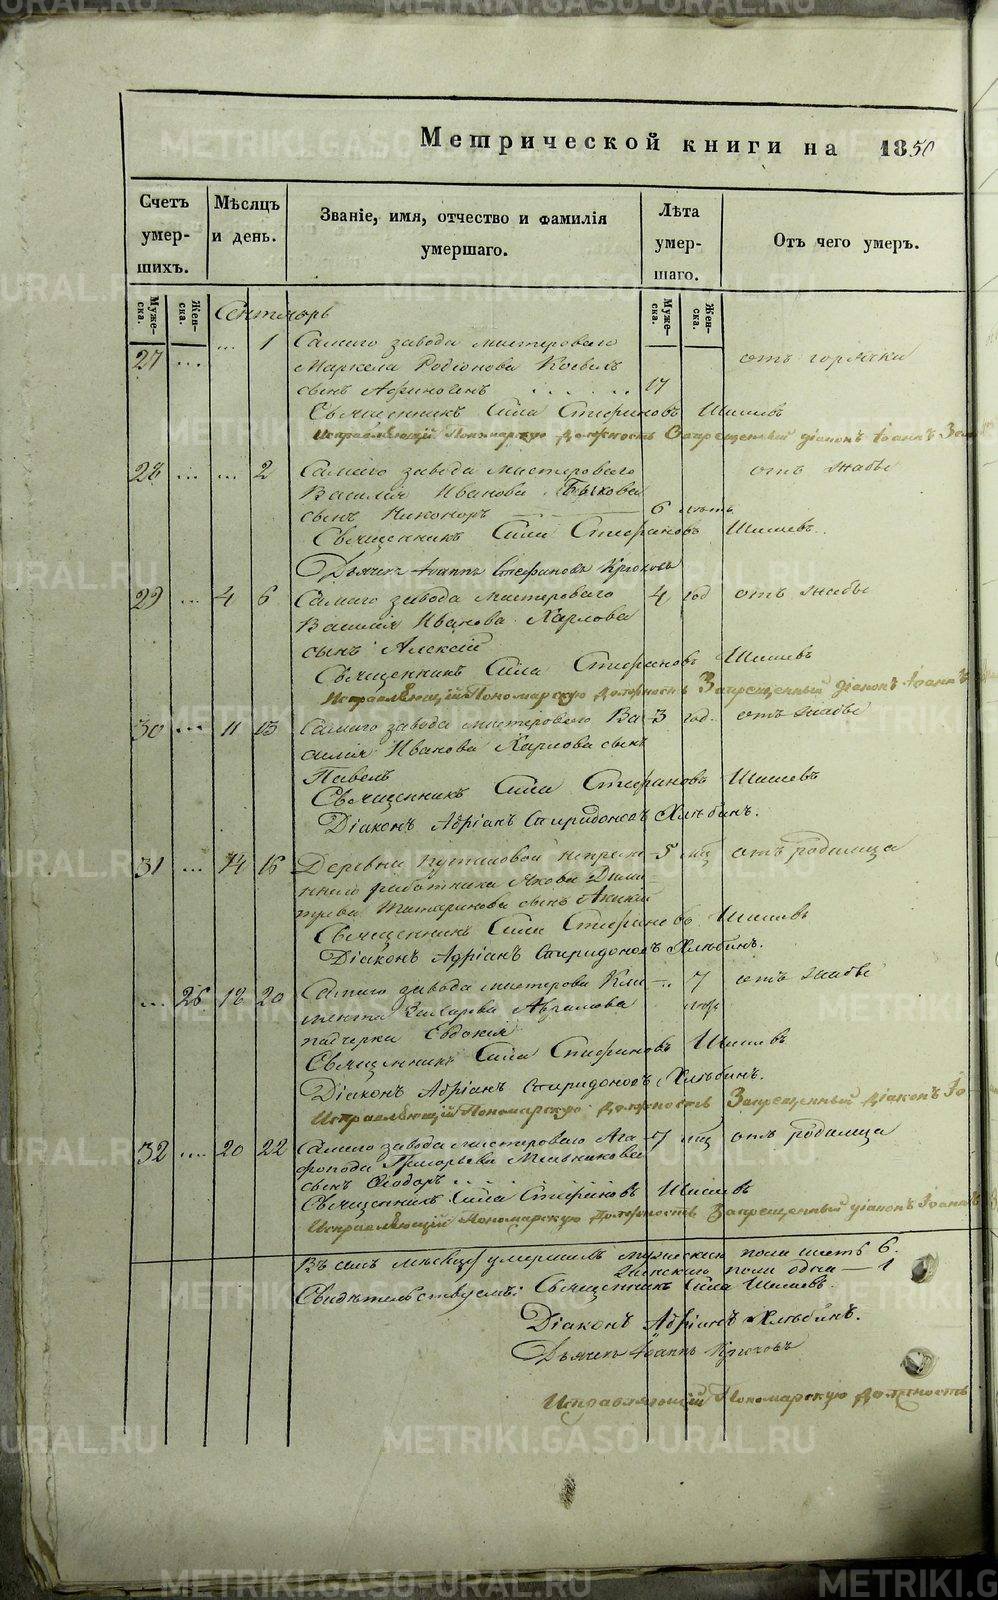 Метрической книги на 1850
Счетъ умер- шихъ.
Мѣсяцъ и день.
Званіе, имя, отчество и фамилія умершаго.
Лѣта умер- шаго.
Отъ чего умеръ.
Муже- ска.
Жен- ска.
Муже- ска.
Жен- ска.
Сентябрь
27 ... ... 1 Самаго завода мастероваго
Маркела Родіонова отъ горячки
сынъ 17
Священникъ Сила Стефановъ Шишевъ
Исправляющій Пономарскую Должность Запрещенный діаконъ Іоаннъ
28 ... ... 2 Самаго завода мастероваго отъ жабы
Василія Иванова Бычкова
сынъ Никоноръ 6 лѣтъ
Священникъ Сила Стефановъ Шишевъ.
Дьячекъ Іоаннъ Стефановъ Крюковъ
29 ... 4 6 Самаго завода мастероваго 4 год отъ жабы
Василія Иванова Харлова
сынъ Алексій
Священникъ Сила Стефановъ Шишевъ
Исправляющій Пономарскую должность Запрещенный діаконъ Іоаннъ
30 ... 11 13 Самаго завода мастероваго Ва- 3 год. отъ жабы
силія Иванова Харлова сынъ
Павелъ
Священникъ Сила Стефановъ Шишевъ
Діаконъ Адріанъ Спиридоновъ Хлѣбинъ.
31 ... 14 16 Деревни непреме- 5 мц отъ родимца
ннаго работника Якова Дими-
тріева Татаринова сынъ
Священникъ Сила Стефановъ Шишевъ
Діаконъ Адріанъ Спиридоновъ Хлѣбинъ.
... 26 18 20 Самаго завода мастерова Кли- ... 7 отъ жабы
мента Захарова Аврамова
падчерка Евдокія
Священникъ Сила Стефановъ Шишевъ
Діаконъ Адріанъ Спиридоновъ Хлѣбинъ.
Исправляющій Пономарскую Должность Запрещенный діаконъ Іо-
32 ... 20 22 Самаго завода мастероваго Ага- 7 мц отъ родимца
фопода Григорьева Мельникова
сынъ Ѳеодоръ
Священникъ Сила Стефановъ Шишевъ
Исправляющій Пономарскую Должность Запрещенный діаконъ Іоаннъ
Въ семъ мѣсяцѣ умершихъ мужеска пола шесть 6.
Женскаго пола одна — 1
Свидѣтельствуемъ: Священникъ Сила Шишевъ.
Діаконъ Адріанъ Хлѣбинъ.
Дьячекъ Іоаннъ Крюковъ
Исправляющій Пономарскую Должность
METRIKI.GASO-URAL.RU